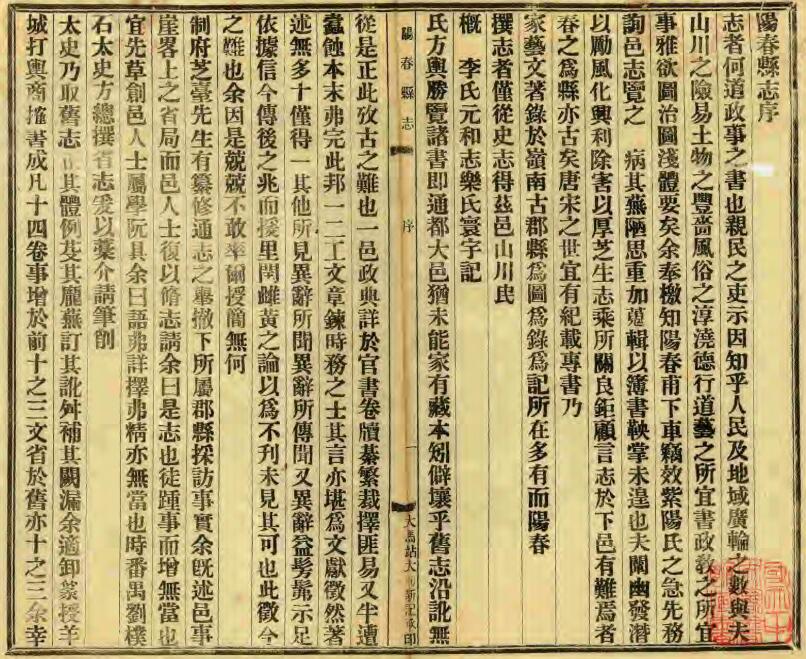 陽春縣志序
志者何道政事之書也親民之吏示因知乎人民及地域廣輪之數與夫
山川之險易土物之豐嗇風俗之淳澆德行道藝之所宜書政敎之所宜
事雅欲圖治圖淺體要矣余奉檄知陽春甫下車竊效紫陽氏之急先務
詢邑志覽之 病其蕪陋思重加蒐輯以簿書鞅掌未遑也夫闡幽發潛
以勵風化興利除害以厚芝生志乘所關良鉅顧言志於下邑有難焉者
春之爲縣亦古矣唐宋之世宜有紀載專書乃
家藝文著錄於嶺南古郡縣爲圖爲錄爲記所在多有而陽春
撰志者僅從史志得茲邑山川民
槪 李氏元和志樂氏寰宇記
氏方輿勝覽諸書即通都大邑猶未能家有藏本矧僻壤乎舊志沿訛無
陽春縣志
序
一
大馬站大 新記承印
從是正此攷古之難也一邑政典詳於官書卷牘綦繁裁擇匪易又半遭
蠹蝕本末弗完此邦一二工文章鍊時務之士其言亦堪爲文獻徵然著
述無多十僅得一其他所見異辭所聞異辭所傳聞又異辭益髣髴示足
依據信今傳後之兆而援里閈雌黃之論以爲不刋未見其可也此徵今
之難也余因是兢兢不敢率爾授簡無何
制府芝臺先生有纂修通志之舉撤下所屬郡縣採訪事實余旣述邑事
崖畧上之省局而邑人士復以脩志請余曰是志也徒踵事而增無當也
宜先草創邑人士屬學阮具余曰語弗詳擇弗精亦無當也時番禺劉樸
石太史方總撰省志爰以藁介請筆削
太史乃取舊志 其體例芟其龐蕪訂其訛舛補其闕漏余適卸篆授羊
城打輿商搉書成凡十四卷事增於前十之三文省於舊亦十之三余幸